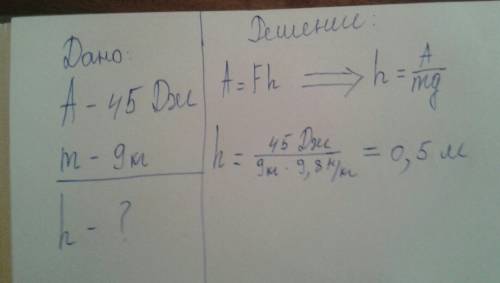 Дано:
A - 45 Дж
m - 9кг
h - ?
Решение:
A = Fh ⟹ h = A/mg
h = 45 Дж/9кг · 9,8 Н/кг = 0,5 м